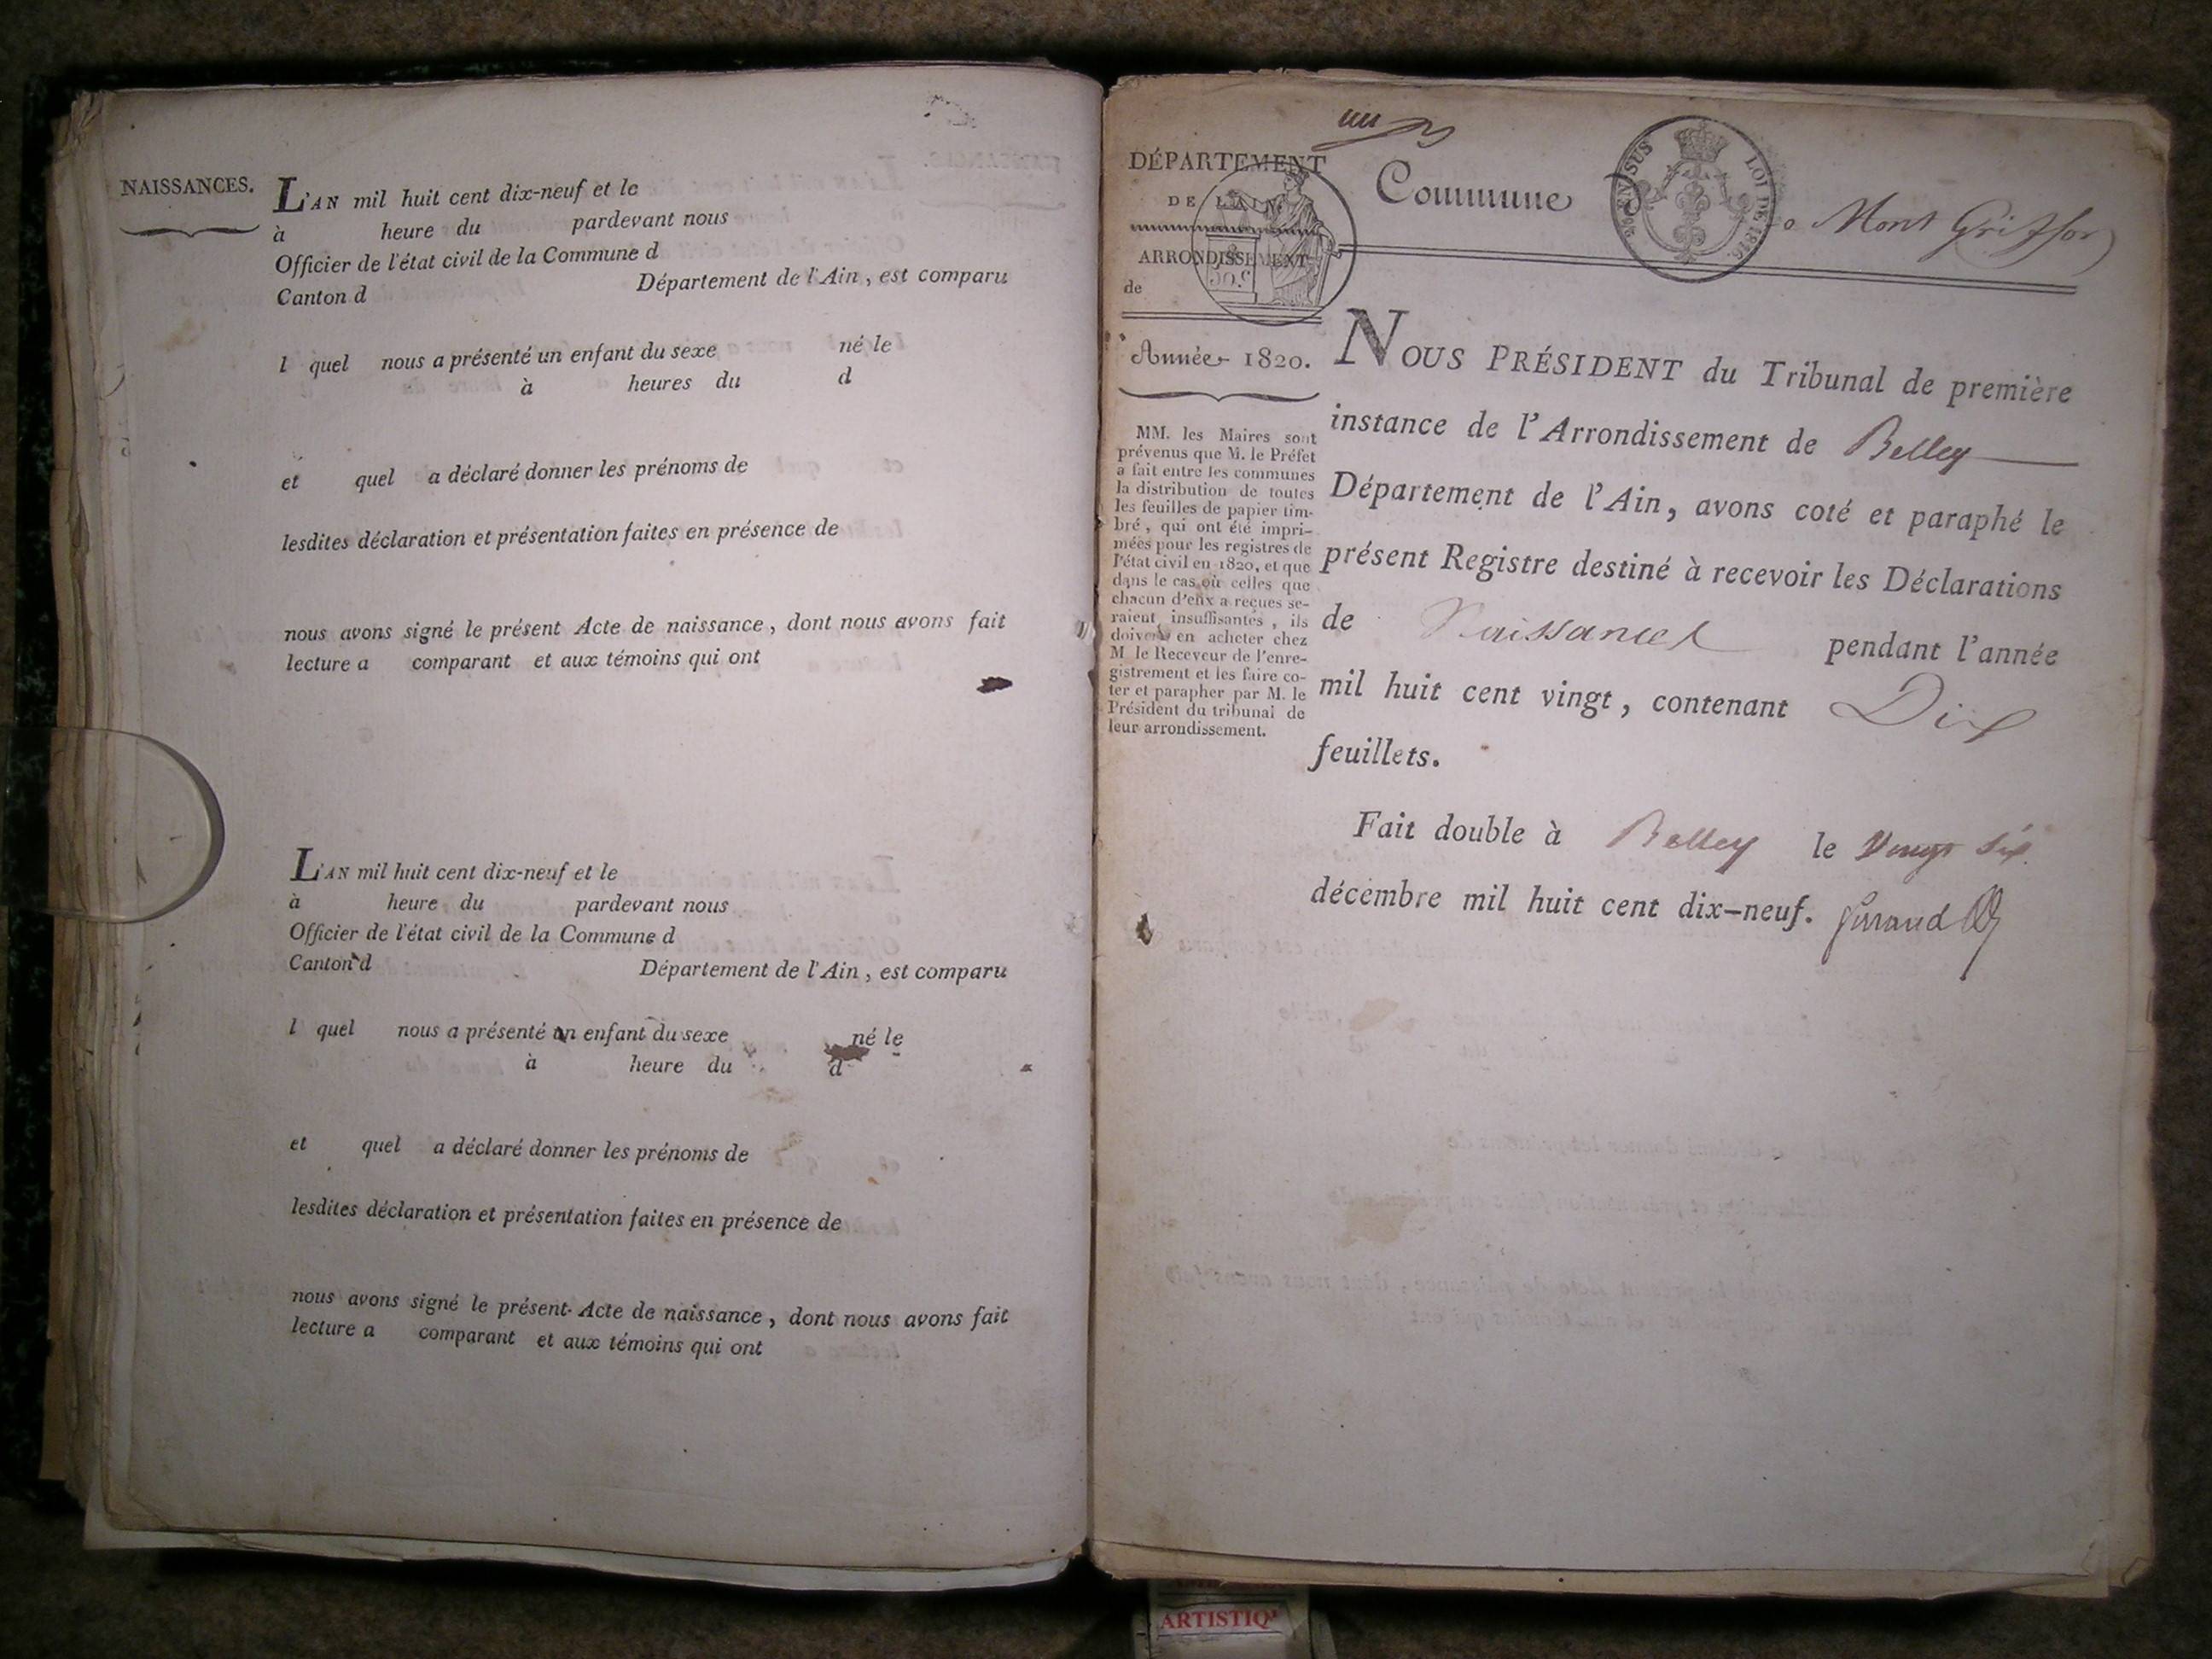 NAISSANCES.
L'AN mil huit cent dix-neuf et le
à heure du pardevant nous
Officier de l'état civil de la Commune d
Canton d Département de l'Ain, est comparu
l quel nous a présenté un enfant du sexe né le
à heures du d
et quel a déclaré donner les prénoms de
lesdites déclaration et présentation faites en présence de
nous avons signé le présent Acte de naissance, dont nous avons fait
lecture a comparant et aux témoins qui ont
L'AN mil huit cent dix-neuf et le
à heure du pardevant nous
Officier de l'état civil de la Commune d
Canton d Département de l'Ain, est comparu
l quel nous a présenté un enfant du sexe né le
à heure du d
et quel a déclaré donner les prénoms de
lesdites déclaration et présentation faites en présence de
nous avons signé le présent Acte de naissance, dont nous avons fait
lecture a comparant et aux témoins qui ont
un
DÉPARTEMENT
DE L'AIN
ARRONDISSEMENT
de
50.c
Année 1820.
MM. les Maires sont
prévenus que M. le Préfet
a fait entre les communes
la distribution de toutes
les feuilles de papier tim-
bré, qui ont été impri-
mées pour les registres de
l'état civil en 1820, et que
dans le cas où celles que
chacun d'eux a reçues se-
raient insuffisantes, ils
doivent en acheter chez
M. le Receveur de l'enre-
gistrement et les faire co-
ter et parapher par M. le
Président du tribunal de
leur arrondissement.
Commune Mont Griffon
EN SUS
LOI DE 1816.
NOUS PRÉSIDENT du Tribunal de première
instance de l'Arrondissement de Belley
Département de l'Ain, avons coté et paraphé le
présent Registre destiné à recevoir les Déclarations
de Naissances pendant l'année
mil huit cent vingt, contenant Dix
feuillets.
Fait double à Belley le Vingt Six
décembre mil huit cent dix-neuf. Giraud
ARTISTIQ